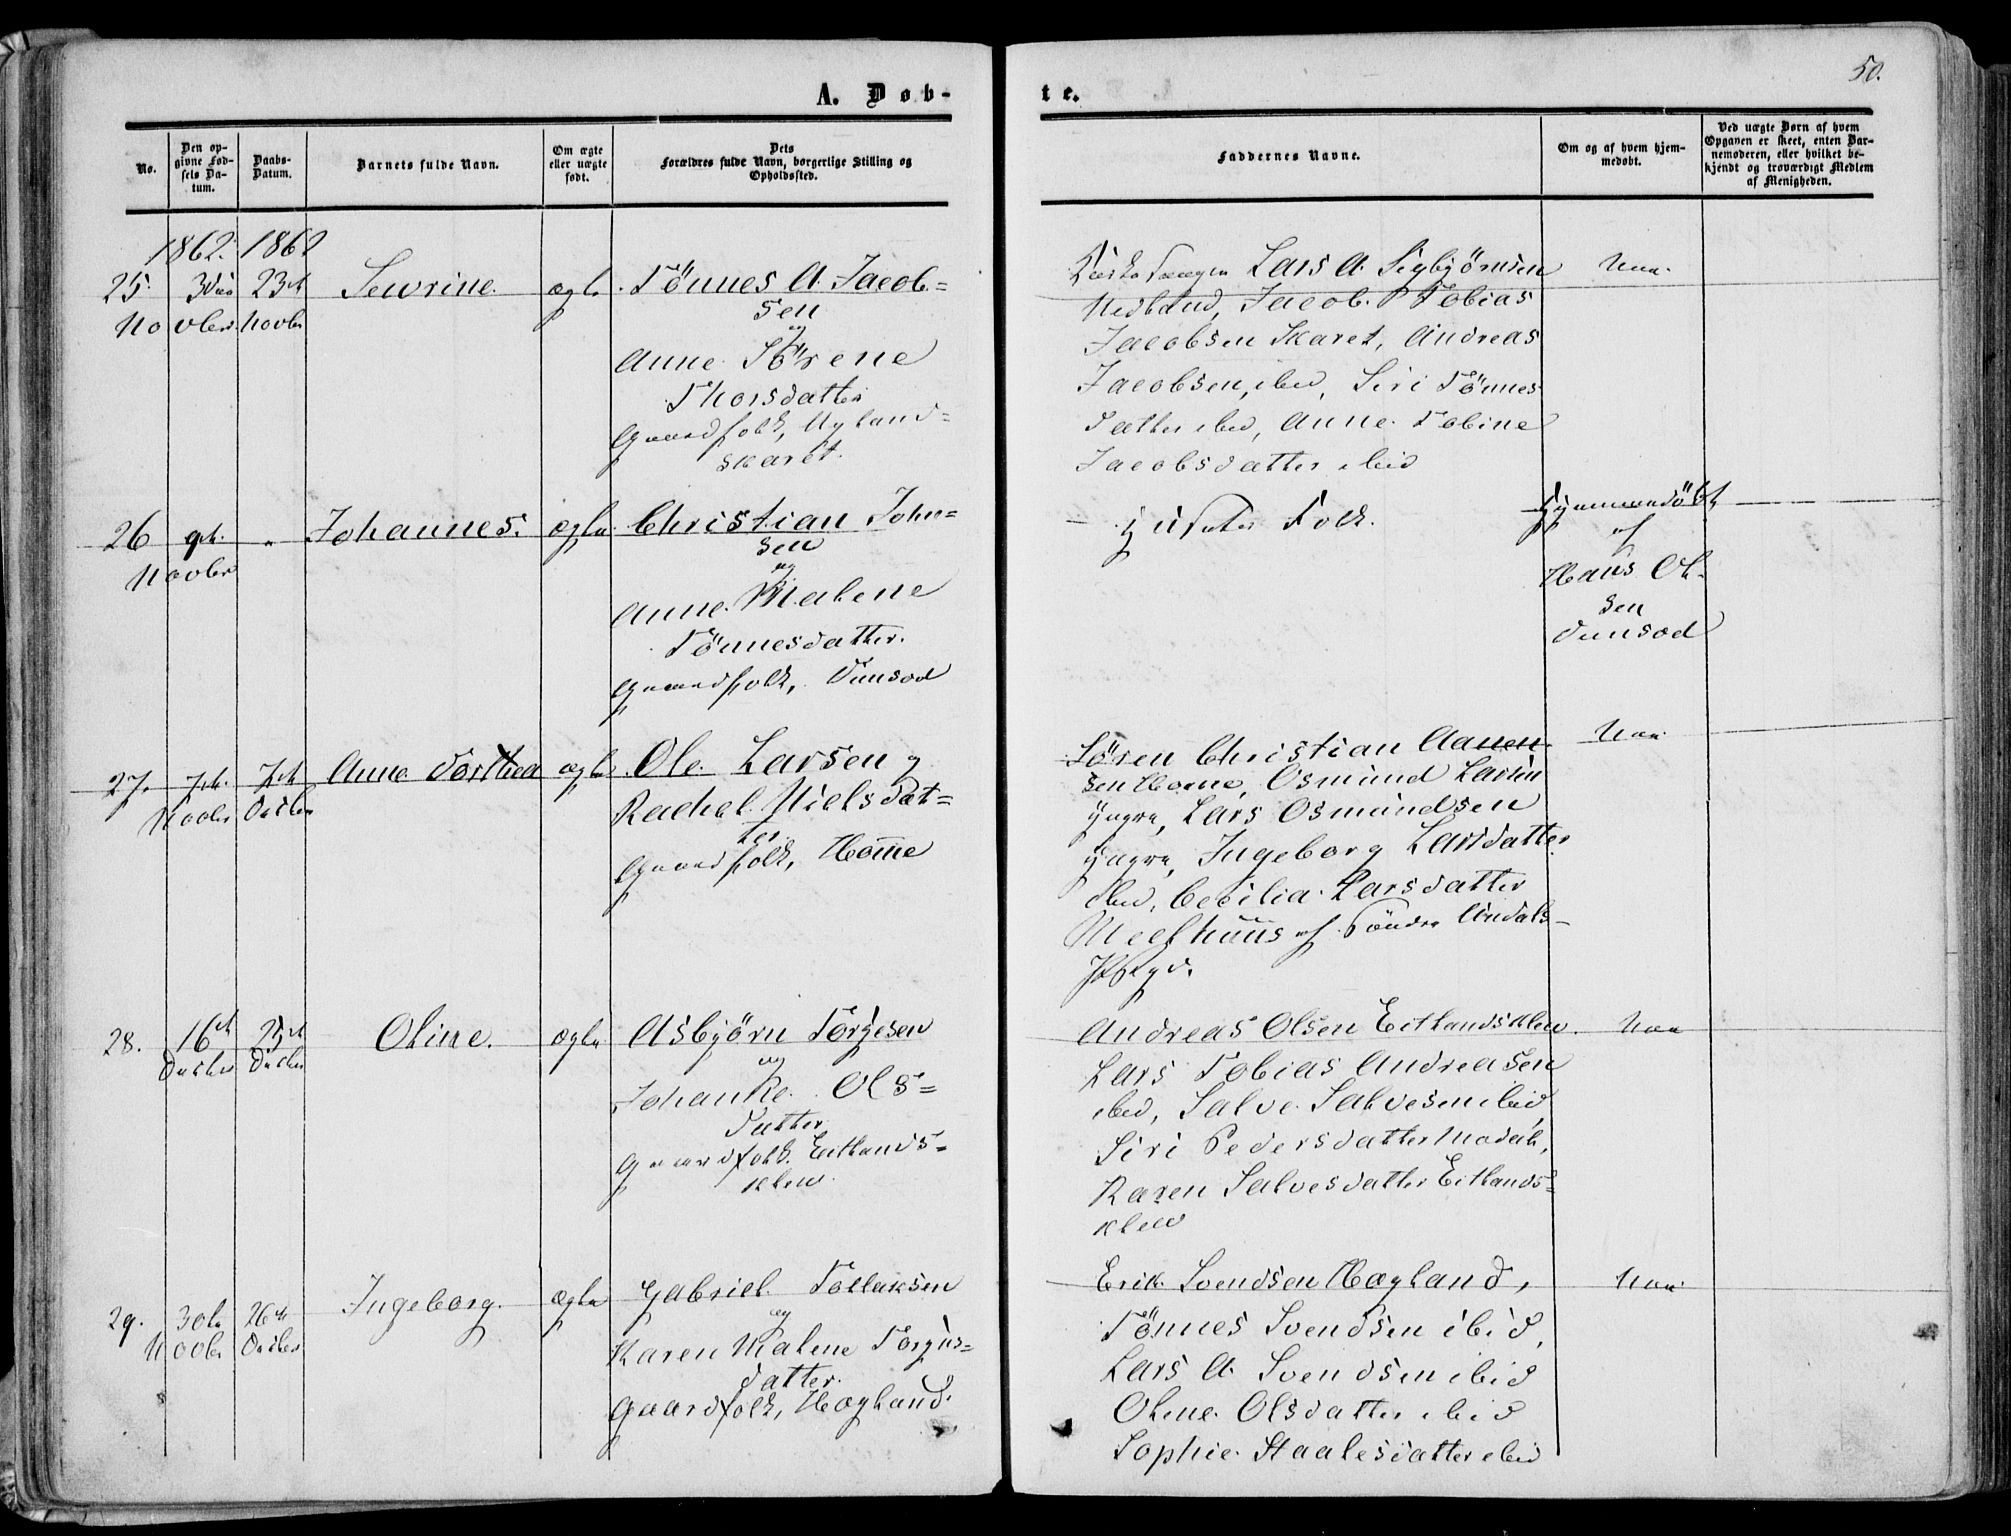 50.
A. Døb-
te.
No.
Den op-
givne Fød-
sels Da-
tum.
Daabs-
Datum.
Barnets fulde Navn.
Om ægte
eller uægte
født.
Dets
Forældres fulde Navn, borgerlige Stilling og
Opholdssted.
Faddernes Navne.
Om og af hvem hjem-
medøbt.
Ved uægte Børn af hvem
Opgaven er skeet, enten Bar-
nemoderen, eller hvilket be-
kjendt og troværdigt Medlem
af Menigheden.
1862. 1862
25. 3die 23de
Novber. Novber
Sevrine.
ægte
Tönnes A. Jacob=
sen
og
Anne Sörene
Thorsdatter
Gaardfolk, Nyland=
skaret.
Lars A. Sigbjörnsen
Nedland, Jacob Tobias
Jacobsen Skaret, Andreas
Jacobsen, ibid, Siri Tönnes
datter ibid, Anne Tobine
Jacobsdatter ibid
Nei.
26 9de "
Novber
Johannes.
ægte
Christian John=
sen
og
Anne Malene
Tönnesdatter.
Gaardfolk, Dunsæd
Huusets Folk.
Hjemmedöbt
af
Hans Ol-
sen
Dunsæd
27. 7de 7de
Novber Decber
Anne Dorthea
ægte
Ole Larsen og
Rachel Nielsdat=
ter.
Gaardfolk, Homme
Sören Christian Aanen-
sen Homme, Osmund Larsen
Ydgre, Lars Osmundsen
Ydgre, Ingeborg Larsdatter
ibid, Cecilia Larsdatter
Meelhuus af Söndre Undals
Prgd.
Nei
28. 16de 25de
Decber Decber
Oline.
ægte
Asbjörn Törjesen
og
Johanne Ols=
datter
Gaardfolk. Eitlands=
klev.
Andreas Olsen Eitlandsklev.
Lars Tobias Andreasen
ibid, Salve Salvesen ibid
Siri Pedersdatter
Karen Salvesdatter Eitlands=
klev
Nei
29. 30te 26de
Novber Decber
Ingeborg.
ægte
Gabriel Tollaksen
og
Karen Malene Torjus=
datter.
Gaardfolk, Hægland.
Erik Svendsen Hægland,
Tönnes Svendsen ibid,
Lars A. Svendsen ibid
Oline Olsdatter ibid
Sophie Staalesdatter ibid
Nei.